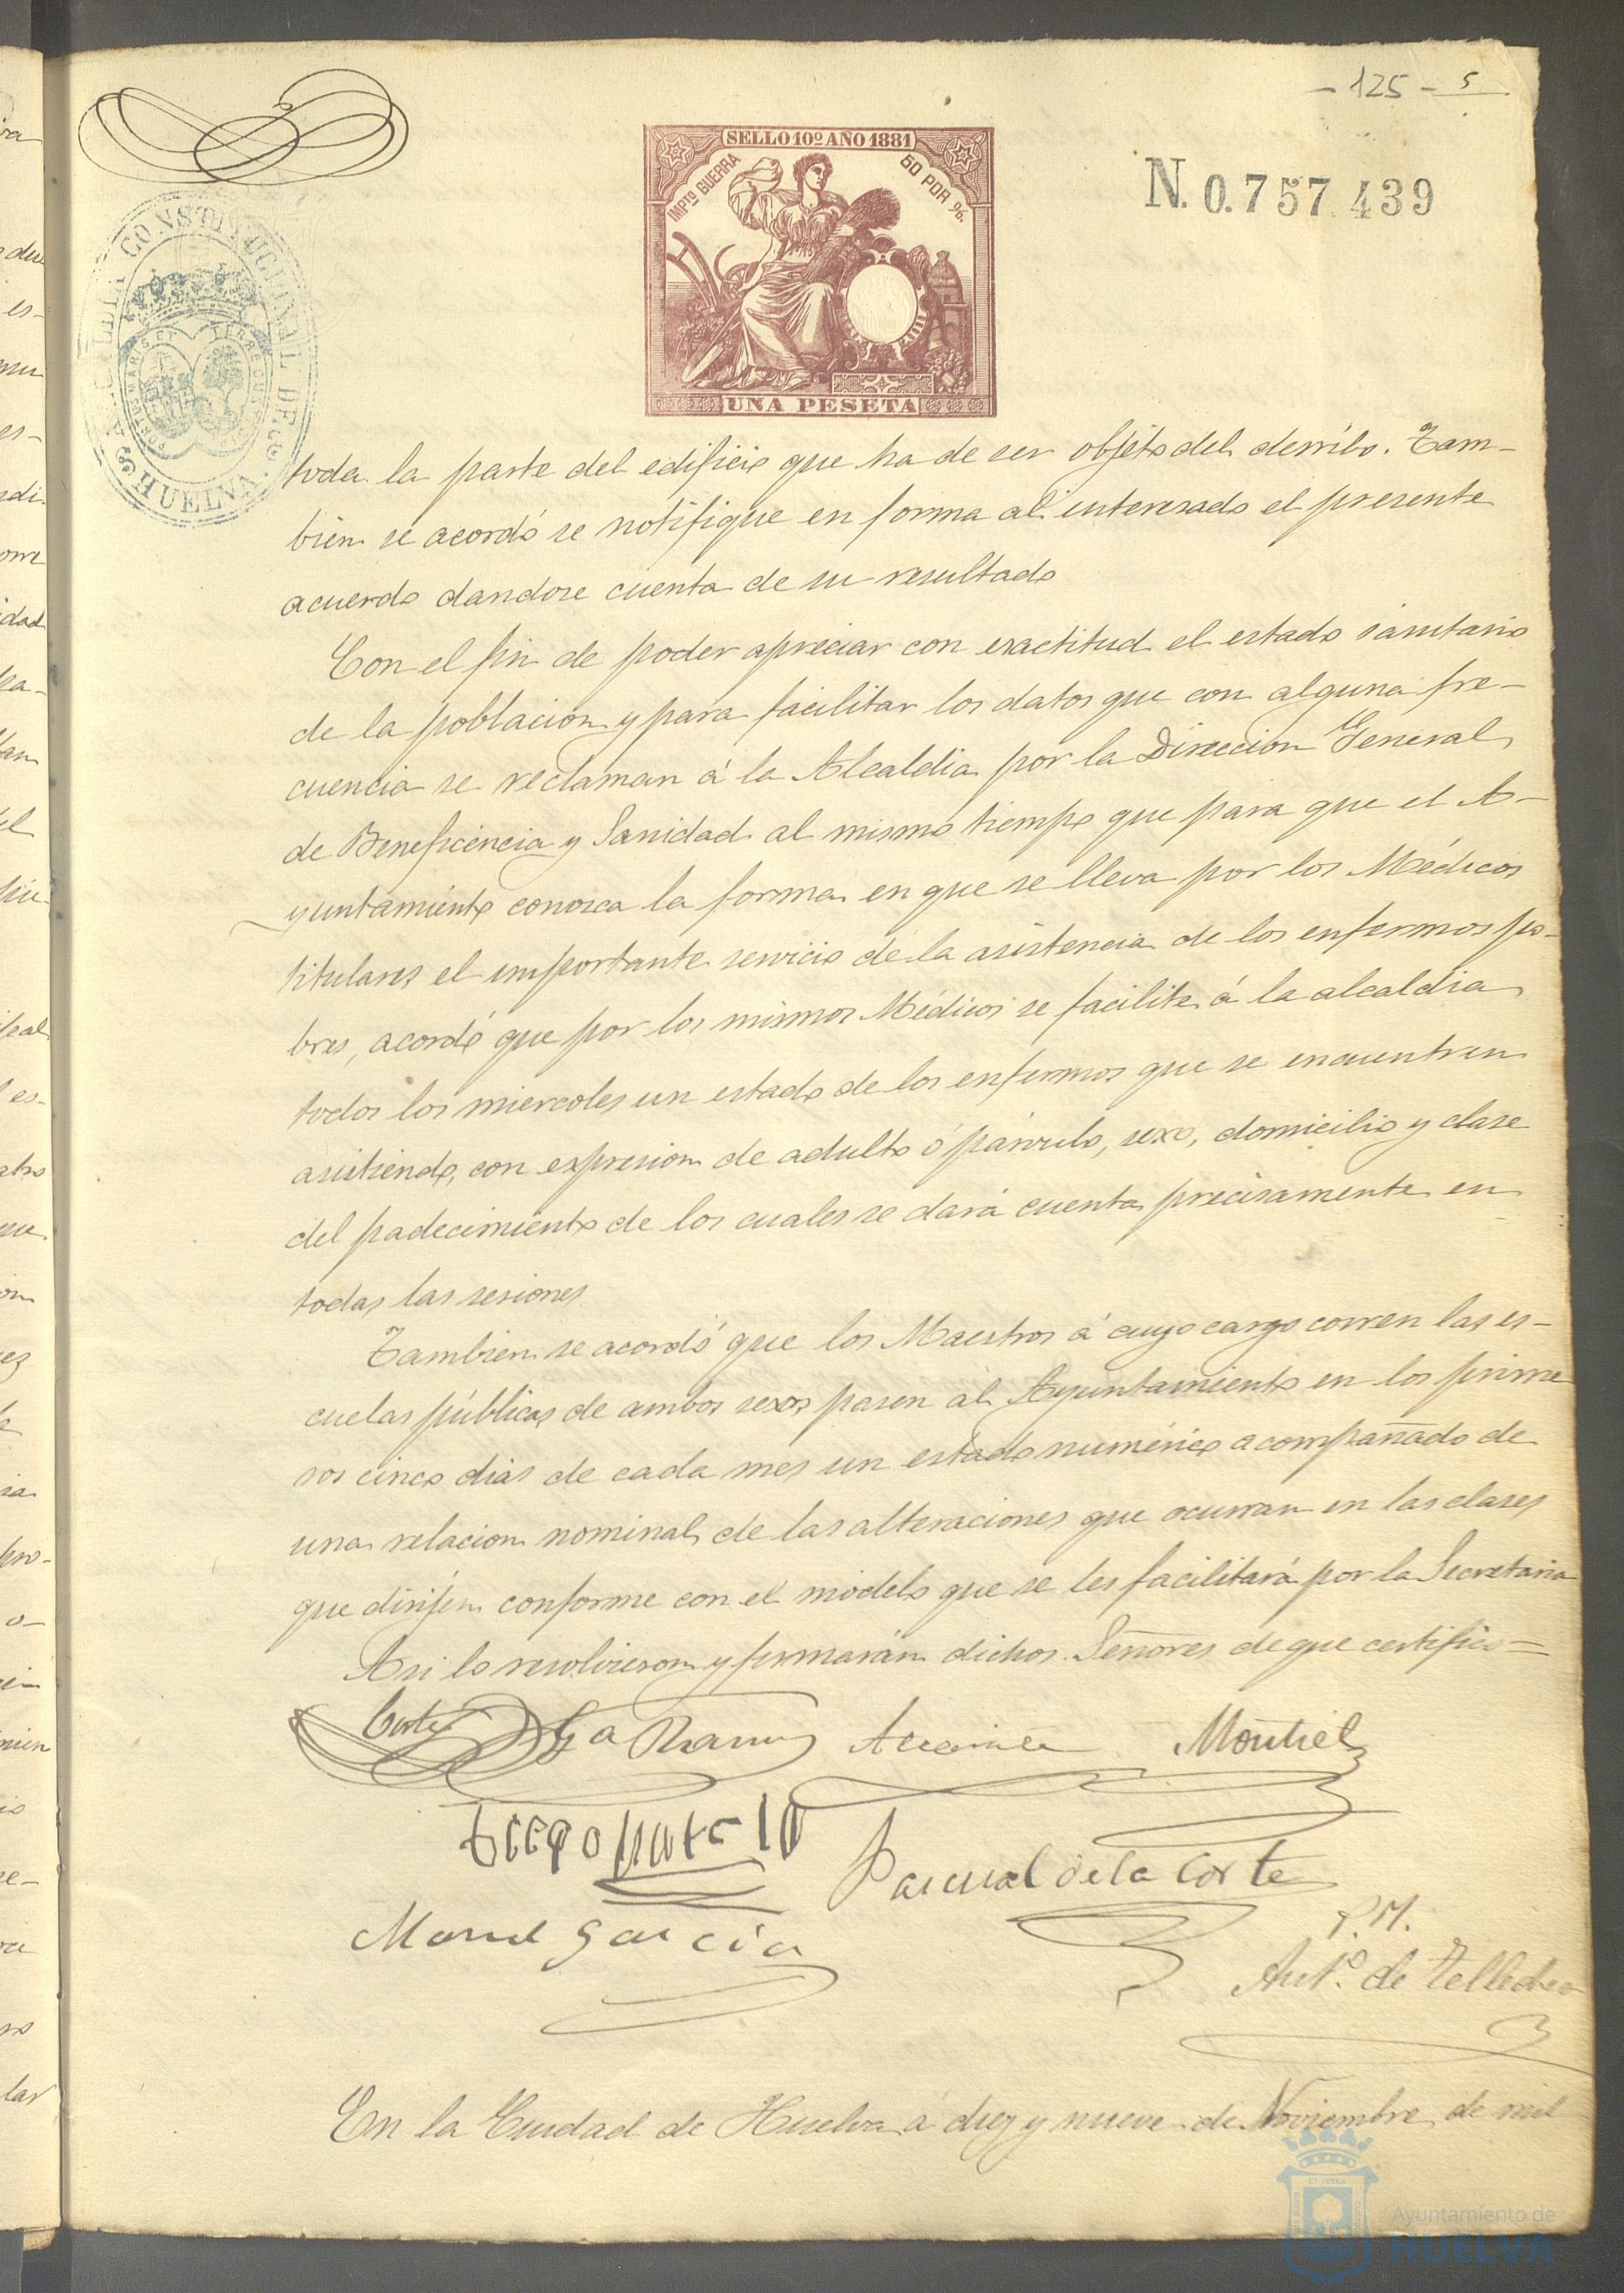 - 125 - 5
SELLO 10º AÑO 1881
IMPTO GUERRA
50 POR %.
UNA PESETA
N. 0.757.439
ALCALDIA CONSTITUCIONAL DE
HUELVA
toda la parte del edificio que ha de ser objeto del derribo. Tam-
bien se acordó se notifique en forma al interesado el presente
acuerdo dandose cuenta de su resultado
Con el fin de poder apreciar con exactitud el estado sanitario
de la poblacion y para facilitar los datos que con alguna fre-
cuencia se reclaman á la Alcaldia por la Direccion General
de Beneficencia y Sanidad al mismo tiempo que para que el A-
yuntamiento conosca la forma en que se lleva por los Médicos
titulares el importante servicio de la asistencia de los enfermos po-
bres, acordó que por los mismos Médicos se facilite á la alcaldia
todos los miercoles un estado de los enfermos que se encuentren
asistiendo, con expresion de adulto ó párvulo, sexo, domicilio y clase
del padecimiento de los cuales se dará cuenta precisamente en
todas las sesiones
Tambien se acordó que los Maestros á cuyo cargo corren las es-
cuelas públicas de ambos sexos pasen al Ayuntamiento en los prime
ros cinco dias de cada mes un estado numérico acompañado de
una relacion nominal de las alteraciones que ocurran en las clases
que dirijen conforme con el modelo que se les facilitará por la Secretaria
Asi lo resolvieron y firmarán dichos Señores de que certifico=
Cortés Gª Ramos Montiel
Pascual de la Corte
Manuel Garcia
P.M.
Antº. de
En la Ciudad de Huelva á diez y nueve de Noviembre de mil
Ayuntamiento de
HUELVA